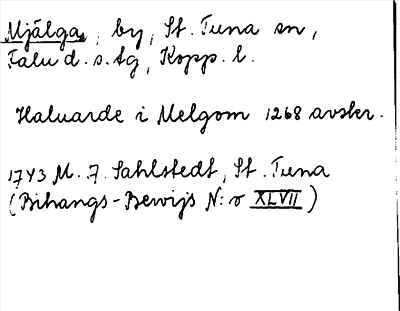 Mjälga, by, St. Tuna sn,
Falu d. s. tg, Kopp. l.
Haluarde i Melgom 1268 avskr.
1743 M. J. Sahlstedt, St. Tuna
(Bihangs-Bewijs N:o XLVII)